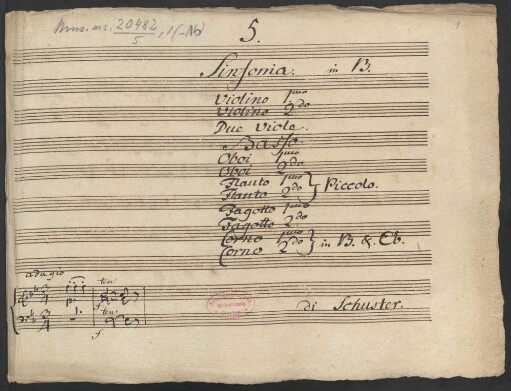 Mus. ms. 20482/5, 1(-16)
5.
Sinfonia. in B.
Violino 1mo
Violino 2do
Due Viole.
Basso.
Oboi 1mo
Oboi 2do
Flauto 1mo
Flauto 2do
Piccolo.
Fagotto 1mo
Fagotto 2do
Corno 1mo
Corno 2do
in B. & Eb.
adagio
ten:
f
ten:
f
di Schuster.